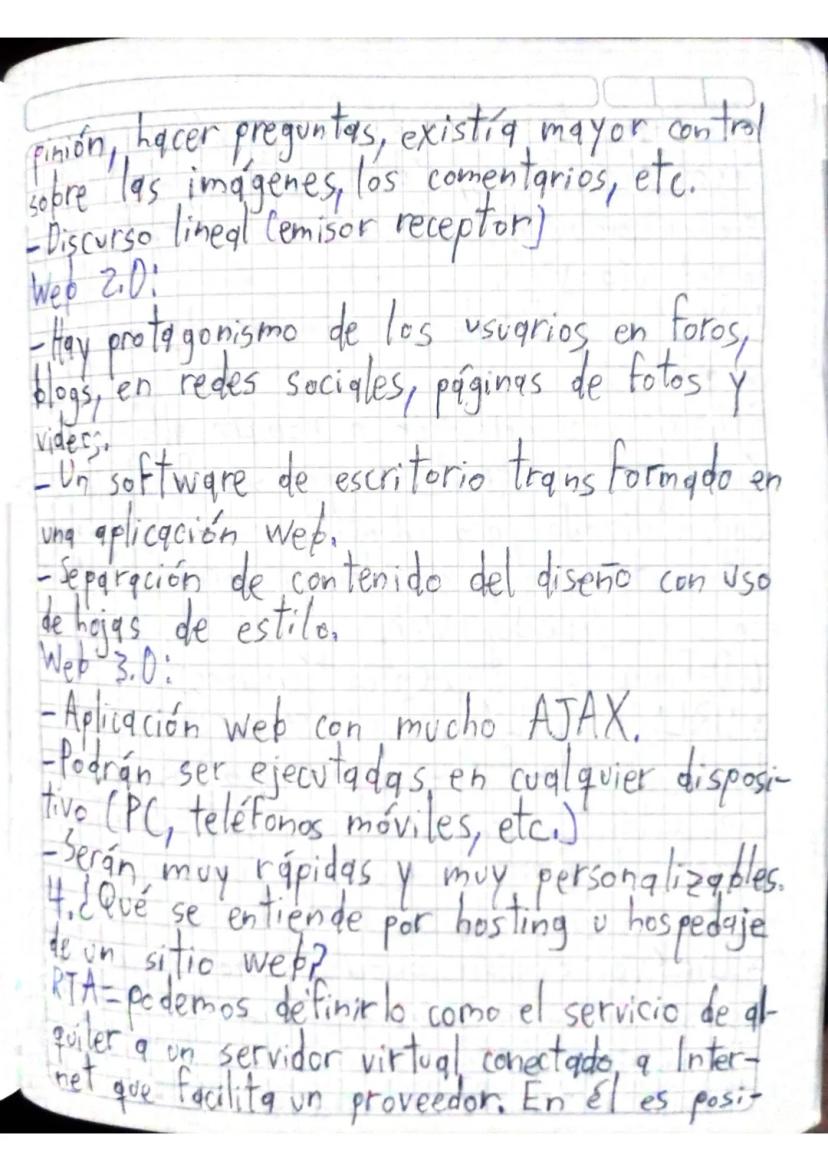 pinión, hacer preguntas, existía mayor control
sobre las imágenes, los comentarios, etc.
-Discurso lineal (emisor receptor)
Web 2.0:
-Hay protagonismo de los usuarios en foros,
blogs, en redes sociales, páginas de fotos y
videos.
-Un software de escritorio transformado en
una aplicación web.
-Separación de contenido del diseño con uso
de hojas de estilo.
Web 3.0:
-Aplicación web con mucho AJAX.
-Podrán ser ejecutadas en cualquier disposi-
tivo (PC, teléfonos móviles, etc.)
-Serán muy rápidas y muy personalizables.
4.¿Qué se entiende por hosting u hospedaje
de un sitio web?
RTA=podemos definirlo como el servicio de al-
quiler a un servidor virtual conectado a Inter-
net que facilita un proveedor. En él es posi-